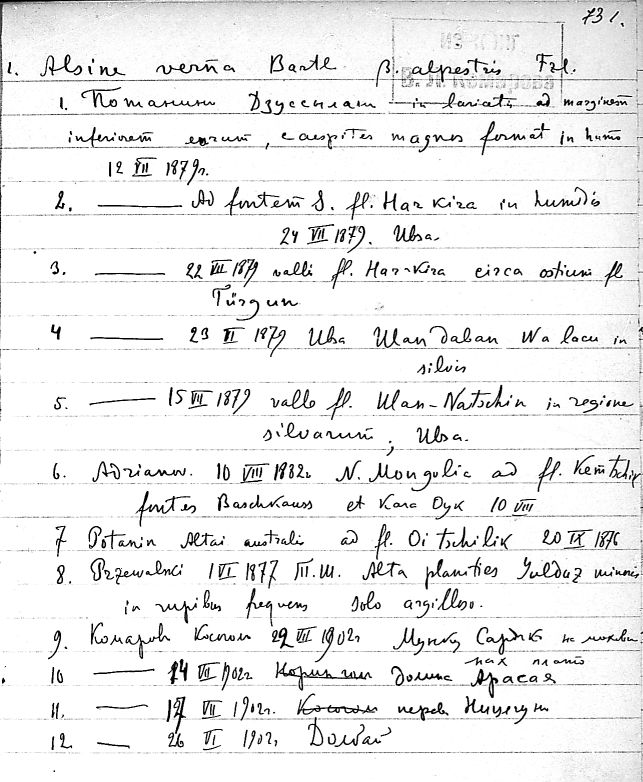 731.
1. Alsine verna Bartl. β. alpestris Fzl.
1. Потанинъ in ad marginem
inferiorem, caespites magnos format in humo
12 VII 1879г.
2. ——— Ad fontem S. fl. Harkira in humidis
24 VII 1879. Ubsa.
3. ——— 22 VII 1879 valli fl. Harkira circa ostium fl
Türgun
4 ——— 23 VI 1879 Ubsa Ulan daban lacu in
silvis
5. ——— 15 VII 1879 valle fl. Ulan-Natschin in regione
silvarum, Ubsa.
6. Adrianov. 10 VIII 1882г N. Mongolia ad fl. Kemtschik
fontes Baschkauss et Kara Dyk 10 VIII
7 Potanin Altai australis ad fl. Oi tschilik 20 IX 1876
8. Przewalski 1 VI 1877 Alta planities Julduz minoris
in rupibus frequens solo argilloso.
9. Комаров Косогол 22 VII 1902г Мунку Сардык на
плато
10 ——— 14 VII 1902г долина Арасая
11. ——— 17 VII 1902г. Косогол перев
12. — 26 VI 1902г